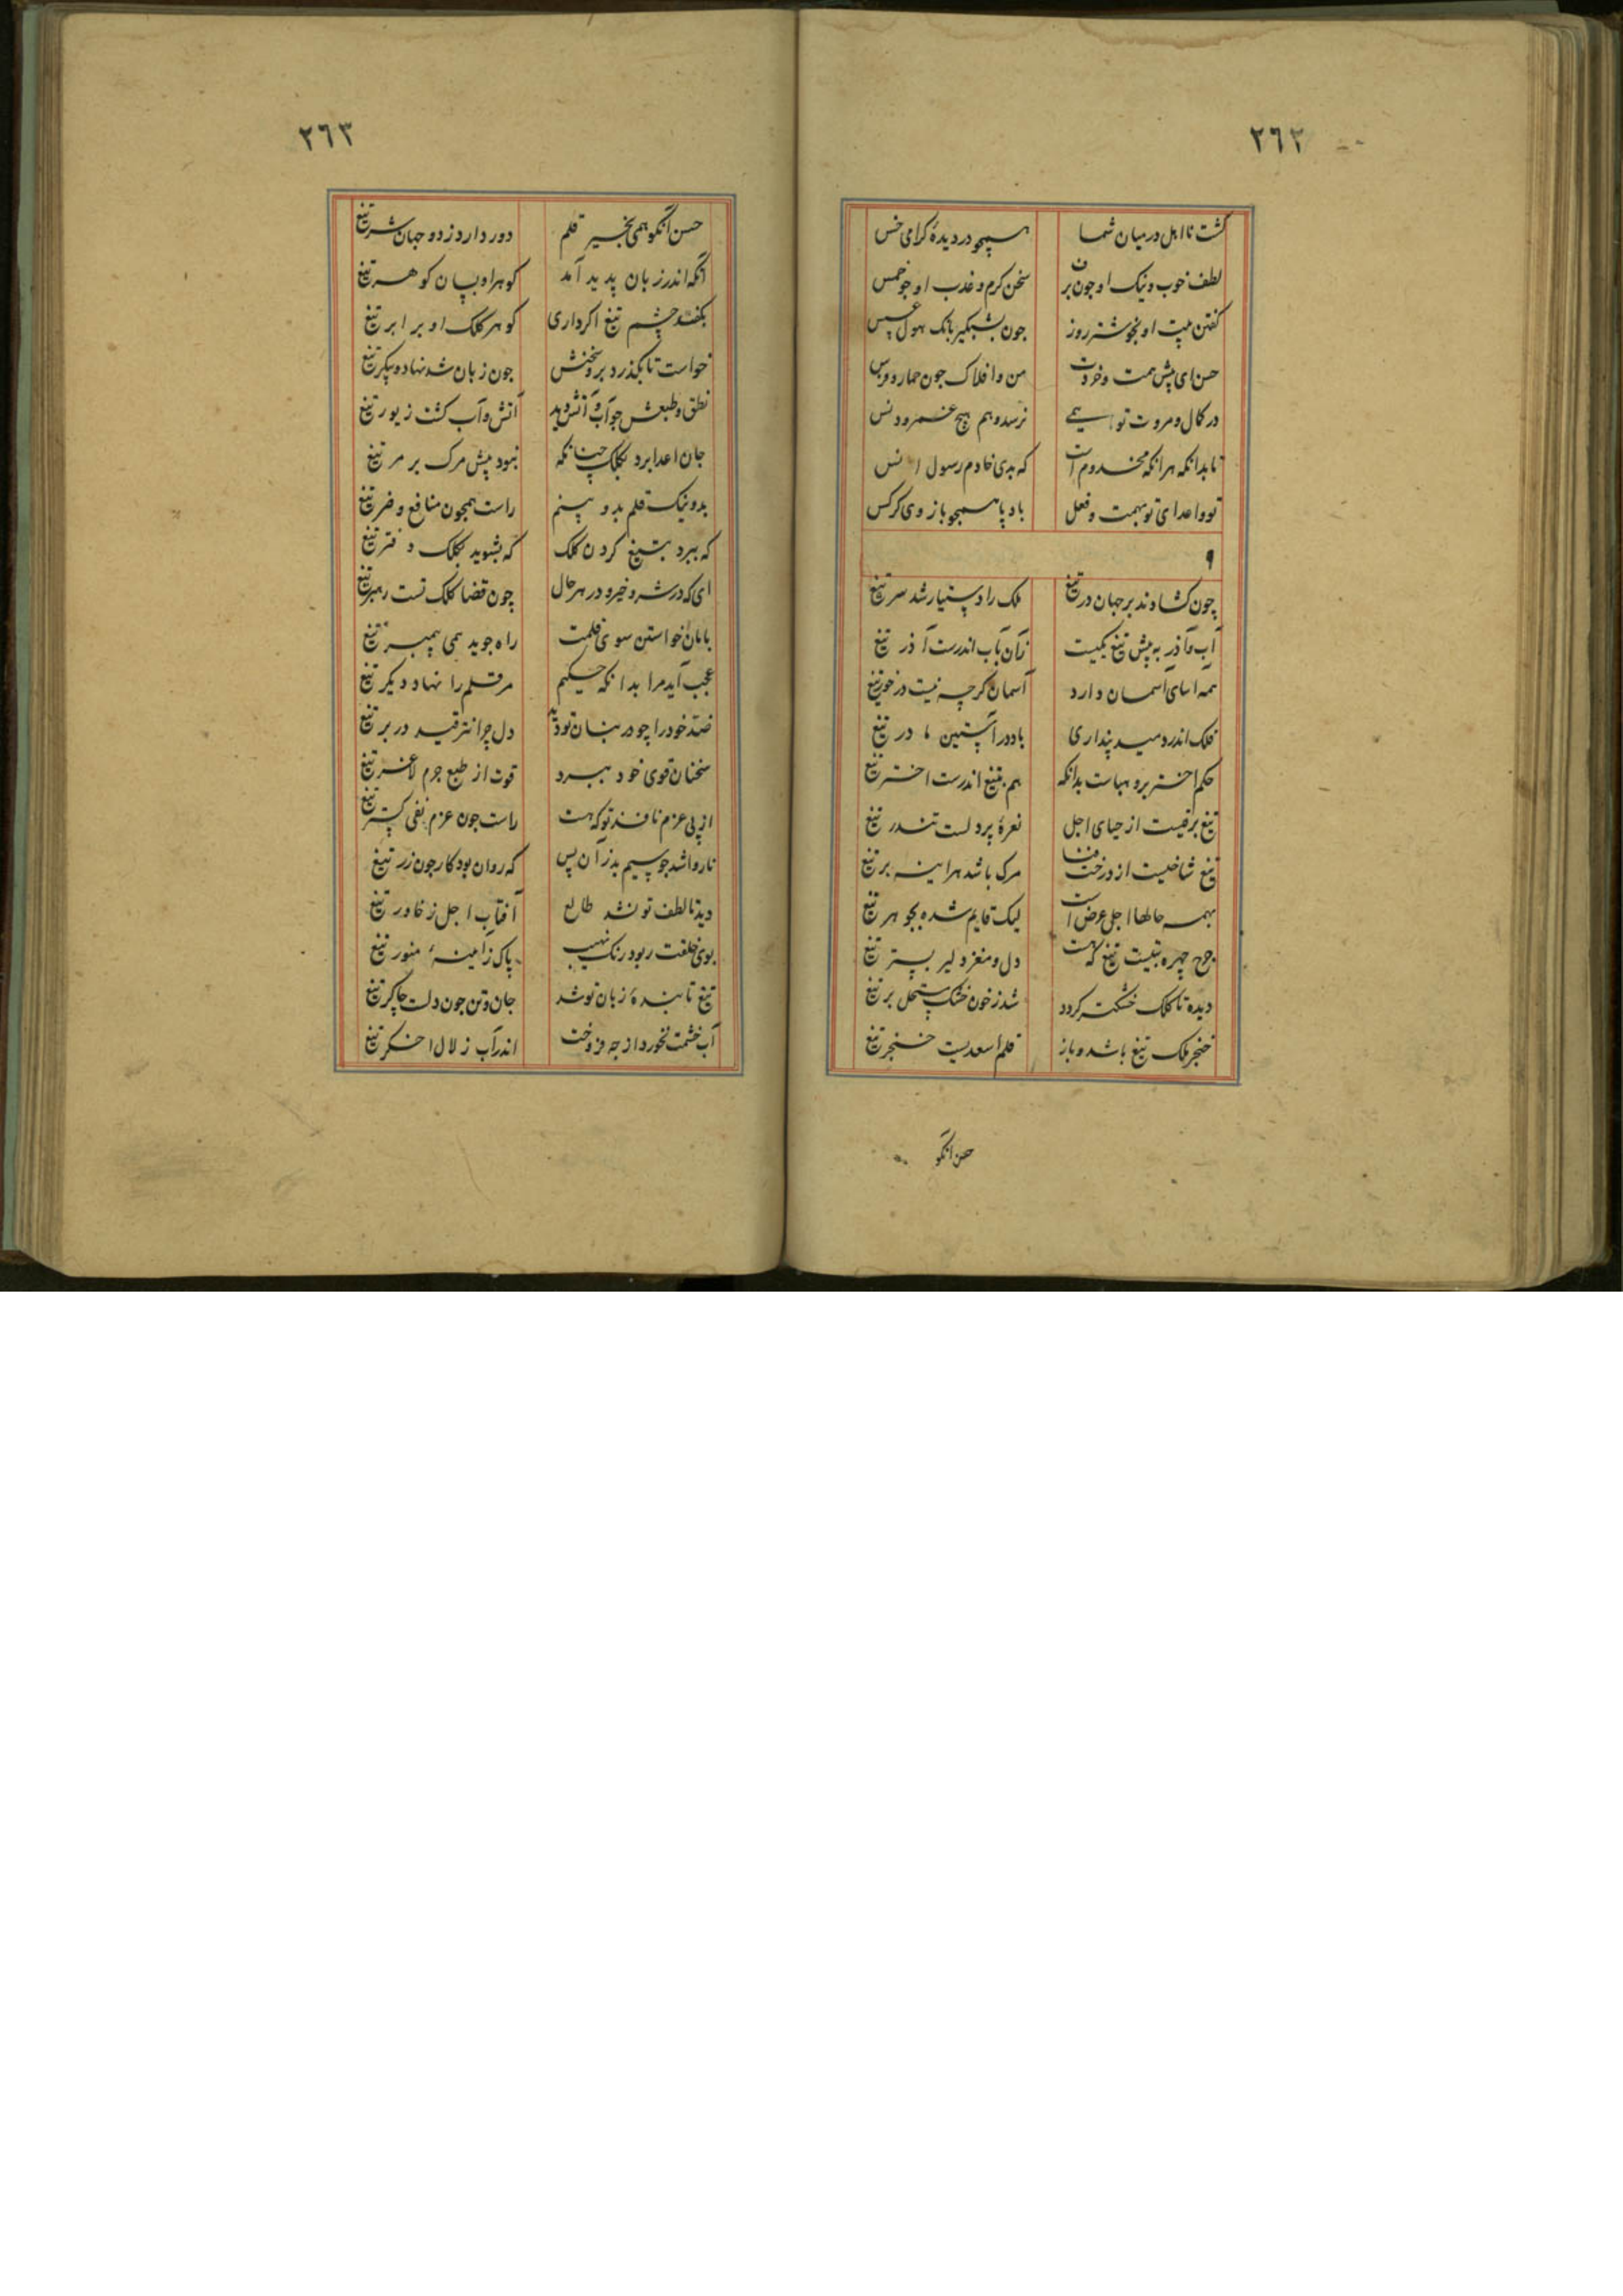 ٢٦٢
گشت نااهل در میان شما همچو در دیدهٔ گرامی خس
لطف خوب و نیک او چون بر سخن گرم و عذب او چو خمس
گفتن بیت او بخوشتر روز چون بشبگیر بانگ هول عسس
حسن ای پیش همت و خردت من و افلاک چون حمار و فرس
در کمال و مروت تو همی نرسد وهم هیچ عمرو و انس
تا بدانکه هرانکه مخدوم است که بدی خادم رسول انس
تو و اعدای تو بهمت و فعل باد پا همچو باز وی کرکس
٩
چون گشادند بر جهان در تیغ ملک را دستیار شد سر تیغ
آب و آذر به پیش تیغ یکیست زان بآب اندرست آذر تیغ
همه اسای آسمان دارد آسمان گرچه نیست درخور تیغ
فلک اندر دمید پنداری باد در آستین مادر تیغ
حکم اختر برو بهاست بدانکه هم بتیغ اندرست اختر تیغ
تیغ برقیست از حیای اجل نعرهٔ پردلست تندر تیغ
تیغ شاخیست از درخت فنا مرگ باشد هراینه بر تیغ
بهمه حالها اجل عرض است لیک قایم شده بجوهر تیغ
چرخ چهره بتیست تیغ که هست دل و مغز دلیر بستر تیغ
دیده تا کلک خشکت گردد شد ز خون خشک مستحل بر تیغ
خنجر ملک تیغ باشد و باز قلم اسعدیست خنجر تیغ
حسن انکو
٢٦٣
حسن آنکو همی بخیر قلم دور دارد ز دو جهان شر تیغ
آنکه اندر زبان پدید آمد گوهر او بسان گوهر تیغ
بکفد چشم تیغ اگر داری گوهر کلک او برابر تیغ
خواست تا بگذرد بر سخنش چون زبان شد نهاده پیکر تیغ
نطق و طبعش چو آب و آتش دید آتش و آب گشت زیور تیغ
جان اعدا برد بکلک چنانکه نبود پیش مرگ بر مر تیغ
بد و نیک قلم بدو بینم راست همچون منافع و ضر تیغ
که ببرد بتیغ گردن کلک که بشوید بکلک دفتر تیغ
ای که در شر و خیر و در هر حال چون قضا کلک تست رهبر تیغ
بامان خواستن سوی قلمت راه جوید همی پیمبر تیغ
عجب آید مرا بدانکه حکیم مر قلم را نهاد دیگر تیغ
ضد خود را چو در بنان تو دید دل چرا نترقید در بر تیغ
سخنان قوی خود ببرد قوت از طبع جرم لاغر تیغ
از پی عزم نافذ تو که هست راست چون عزم نفی گستر تیغ
ناروا شد چو سیم بد زان پس که روان بود کار چون زر تیغ
دید تا لطف تو نشد طالع آفتاب اجل ز خاور تیغ
بوی خلقت ربود رنگ نهیب پاک ز آیینهٔ منور تیغ
تیغ تا بندهٔ زبان تو شد جان و تن چون دلت چاکر تیغ
آب خشمت نخورد از چه فروخت اندر آب زلال اخگر تیغ